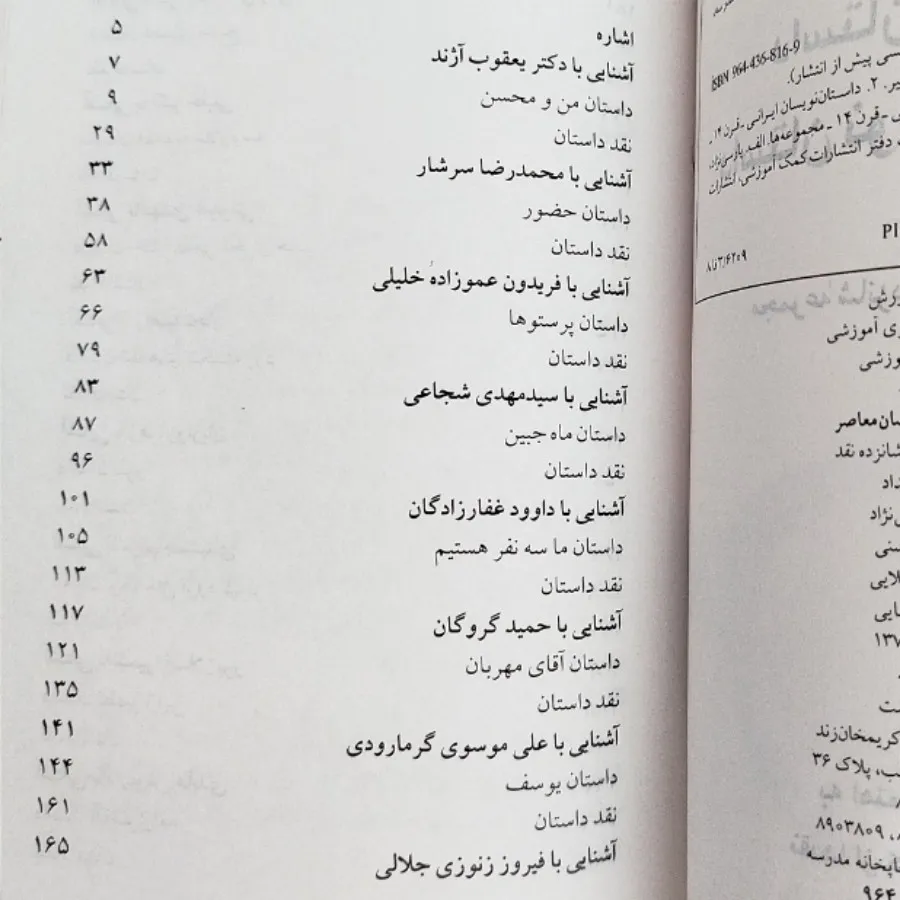 اشاره ۵
آشنایی با دکتر یعقوب آژند ۷
داستان من و محسن ۹
نقد داستان ۲۹
آشنایی با محمدرضا سرشار ۳۳
داستان حضور ۳۸
نقد داستان ۵۸
آشنایی با فریدون عموزادهٔ خلیلی ۶۳
داستان پرستوها ۶۶
نقد داستان ۷۹
آشنایی با سیدمهدی شجاعی ۸۳
داستان ماه جبین ۸۷
نقد داستان ۹۶
آشنایی با داوود غفارزادگان ۱۰۱
داستان ما سه نفر هستیم ۱۰۵
نقد داستان ۱۱۳
آشنایی با حمید گروگان ۱۱۷
داستان آقای مهربان ۱۲۱
نقد داستان ۱۳۵
آشنایی با علی موسوی گرمارودی ۱۴۱
داستان یوسف ۱۴۴
نقد داستان ۱۶۱
آشنایی با فیروز زنوزی جلالی ۱۶۵
ISBN 964-436-816-9
سی پیش از انتشار).
یر. ۲. داستان‌نویسان ایرانی ـ قرن ۱۴ ـ
ـ قرن ۱۴ ـ مجموعه‌ها. الف. پارسی‌نژاد،
دفتر انتشارات کمک آموزشی. انتشارات
۸فا۳/۶۲۰۹
PI
ورش
ی آموزشی
وزشی
سان معاصر
شانزده نقد
داد
ی‌نژاد
سنی
لایی
نایی
۱۳۷
ست
کریمخان‌زند
ب، پلاک ۳۶
۸۹۰۳۸۰۹
چاپخانه مدرسه
۹۶۴